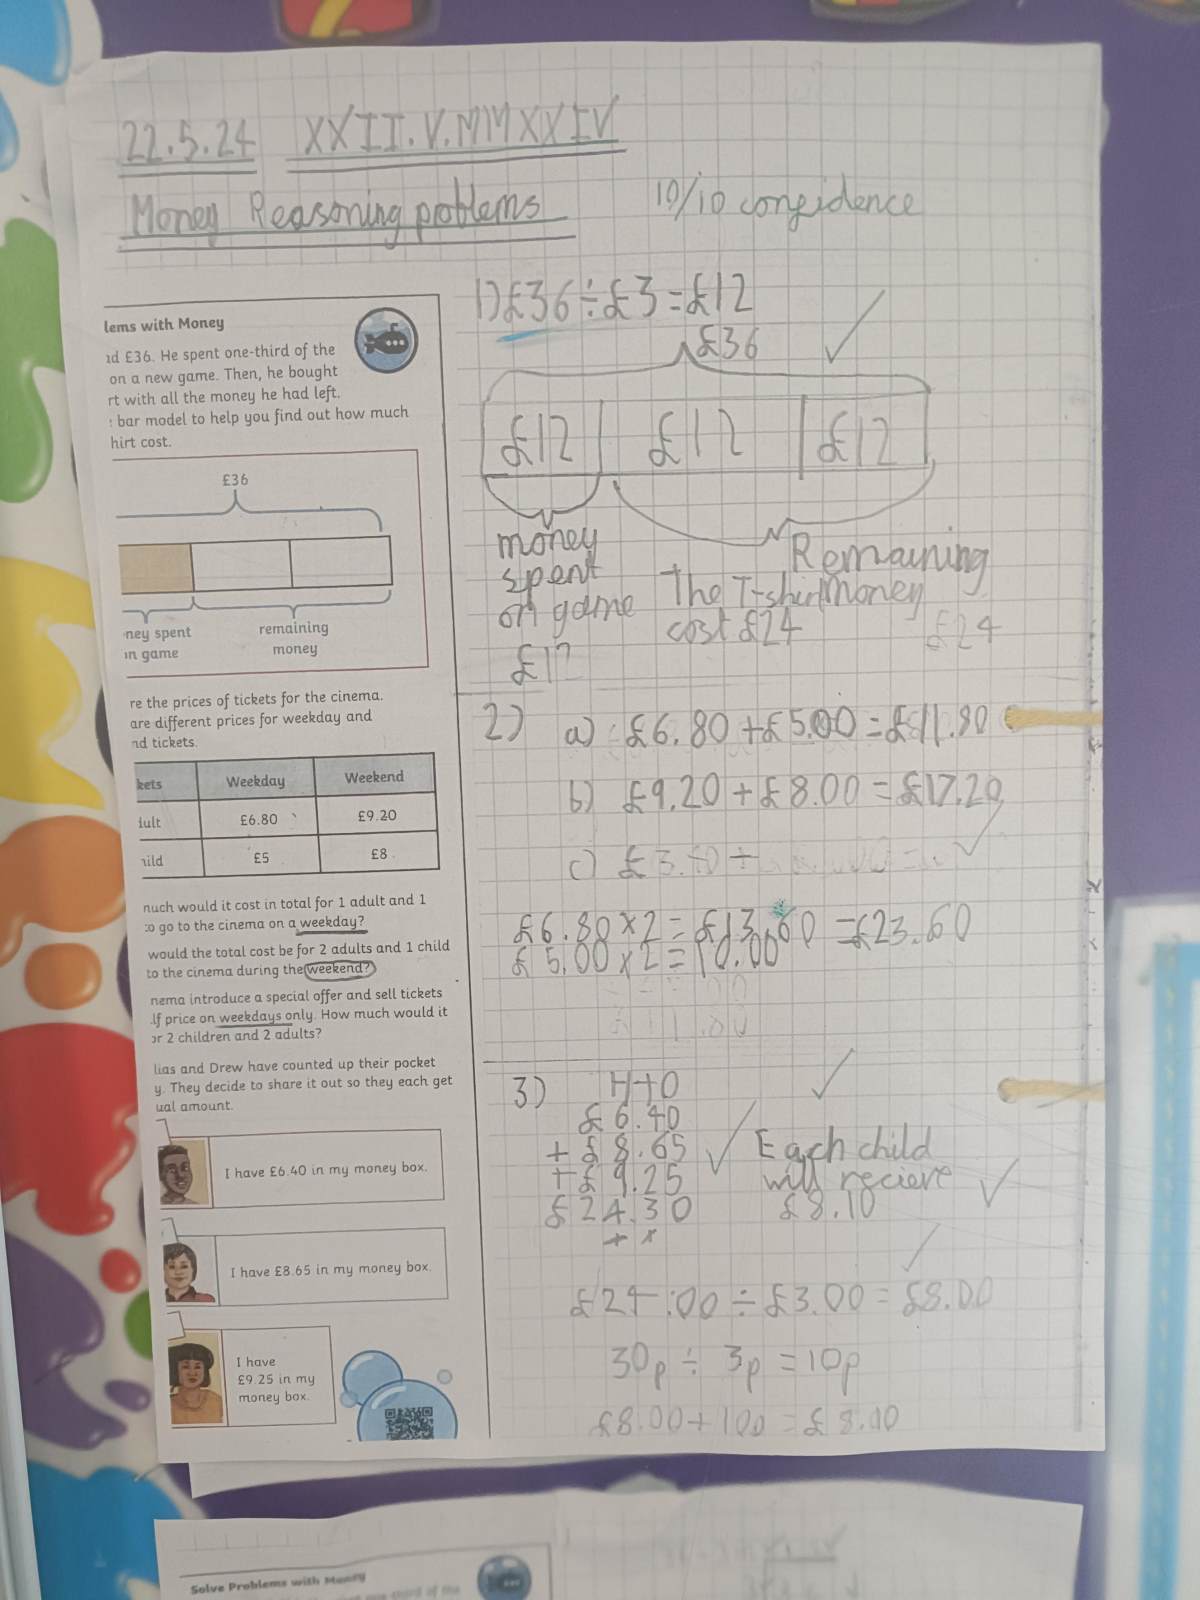 22.5.24 XXII.V.MMXXIV
Money Reasoning problems
10/10 confidence
lems with Money
d £36. He spent one-third of the
on a new game. Then, he bought
rt with all the money he had left.
bar model to help you find out how much
hirt cost.
£36
ney spent
n game
remaining
money
re the prices of tickets for the cinema.
are different prices for weekday and
nd tickets.
kets Weekday Weekend
dult £6.80 £9.20
hild £5 £8
much would it cost in total for 1 adult and 1
to go to the cinema on a weekday?
would the total cost be for 2 adults and 1 child
to the cinema during the weekend?
nema introduce a special offer and sell tickets
lf price on weekdays only. How much would it
or 2 children and 2 adults?
lias and Drew have counted up their pocket
y. They decide to share it out so they each get
ual amount.
I have £6.40 in my money box.
I have £8.65 in my money box.
I have
£9.25 in my
money box.
1) £36 ÷ £3 = £12
£36
£12 £12 £12
money
spent
on game
£12
The T-shirt
cost £24
Remaining
money
£24
2) a) £6.80 + £5.00 = £11.80
b) £9.20 + £8.00 = £17.20
c) £3.
£6.80 × 2 = £13.60 = £23.60
£5.00 × 2 = 10.00
3) HTO
£6.40
+ £8.65
+ £9.25
£24.30
Each child
will recieve
£8.10
£24.00 ÷ £3.00 = £8.00
30p ÷ 3p = 10p
£8.00 + 10p = £8.10
Solve Problems with Money
one-third of the